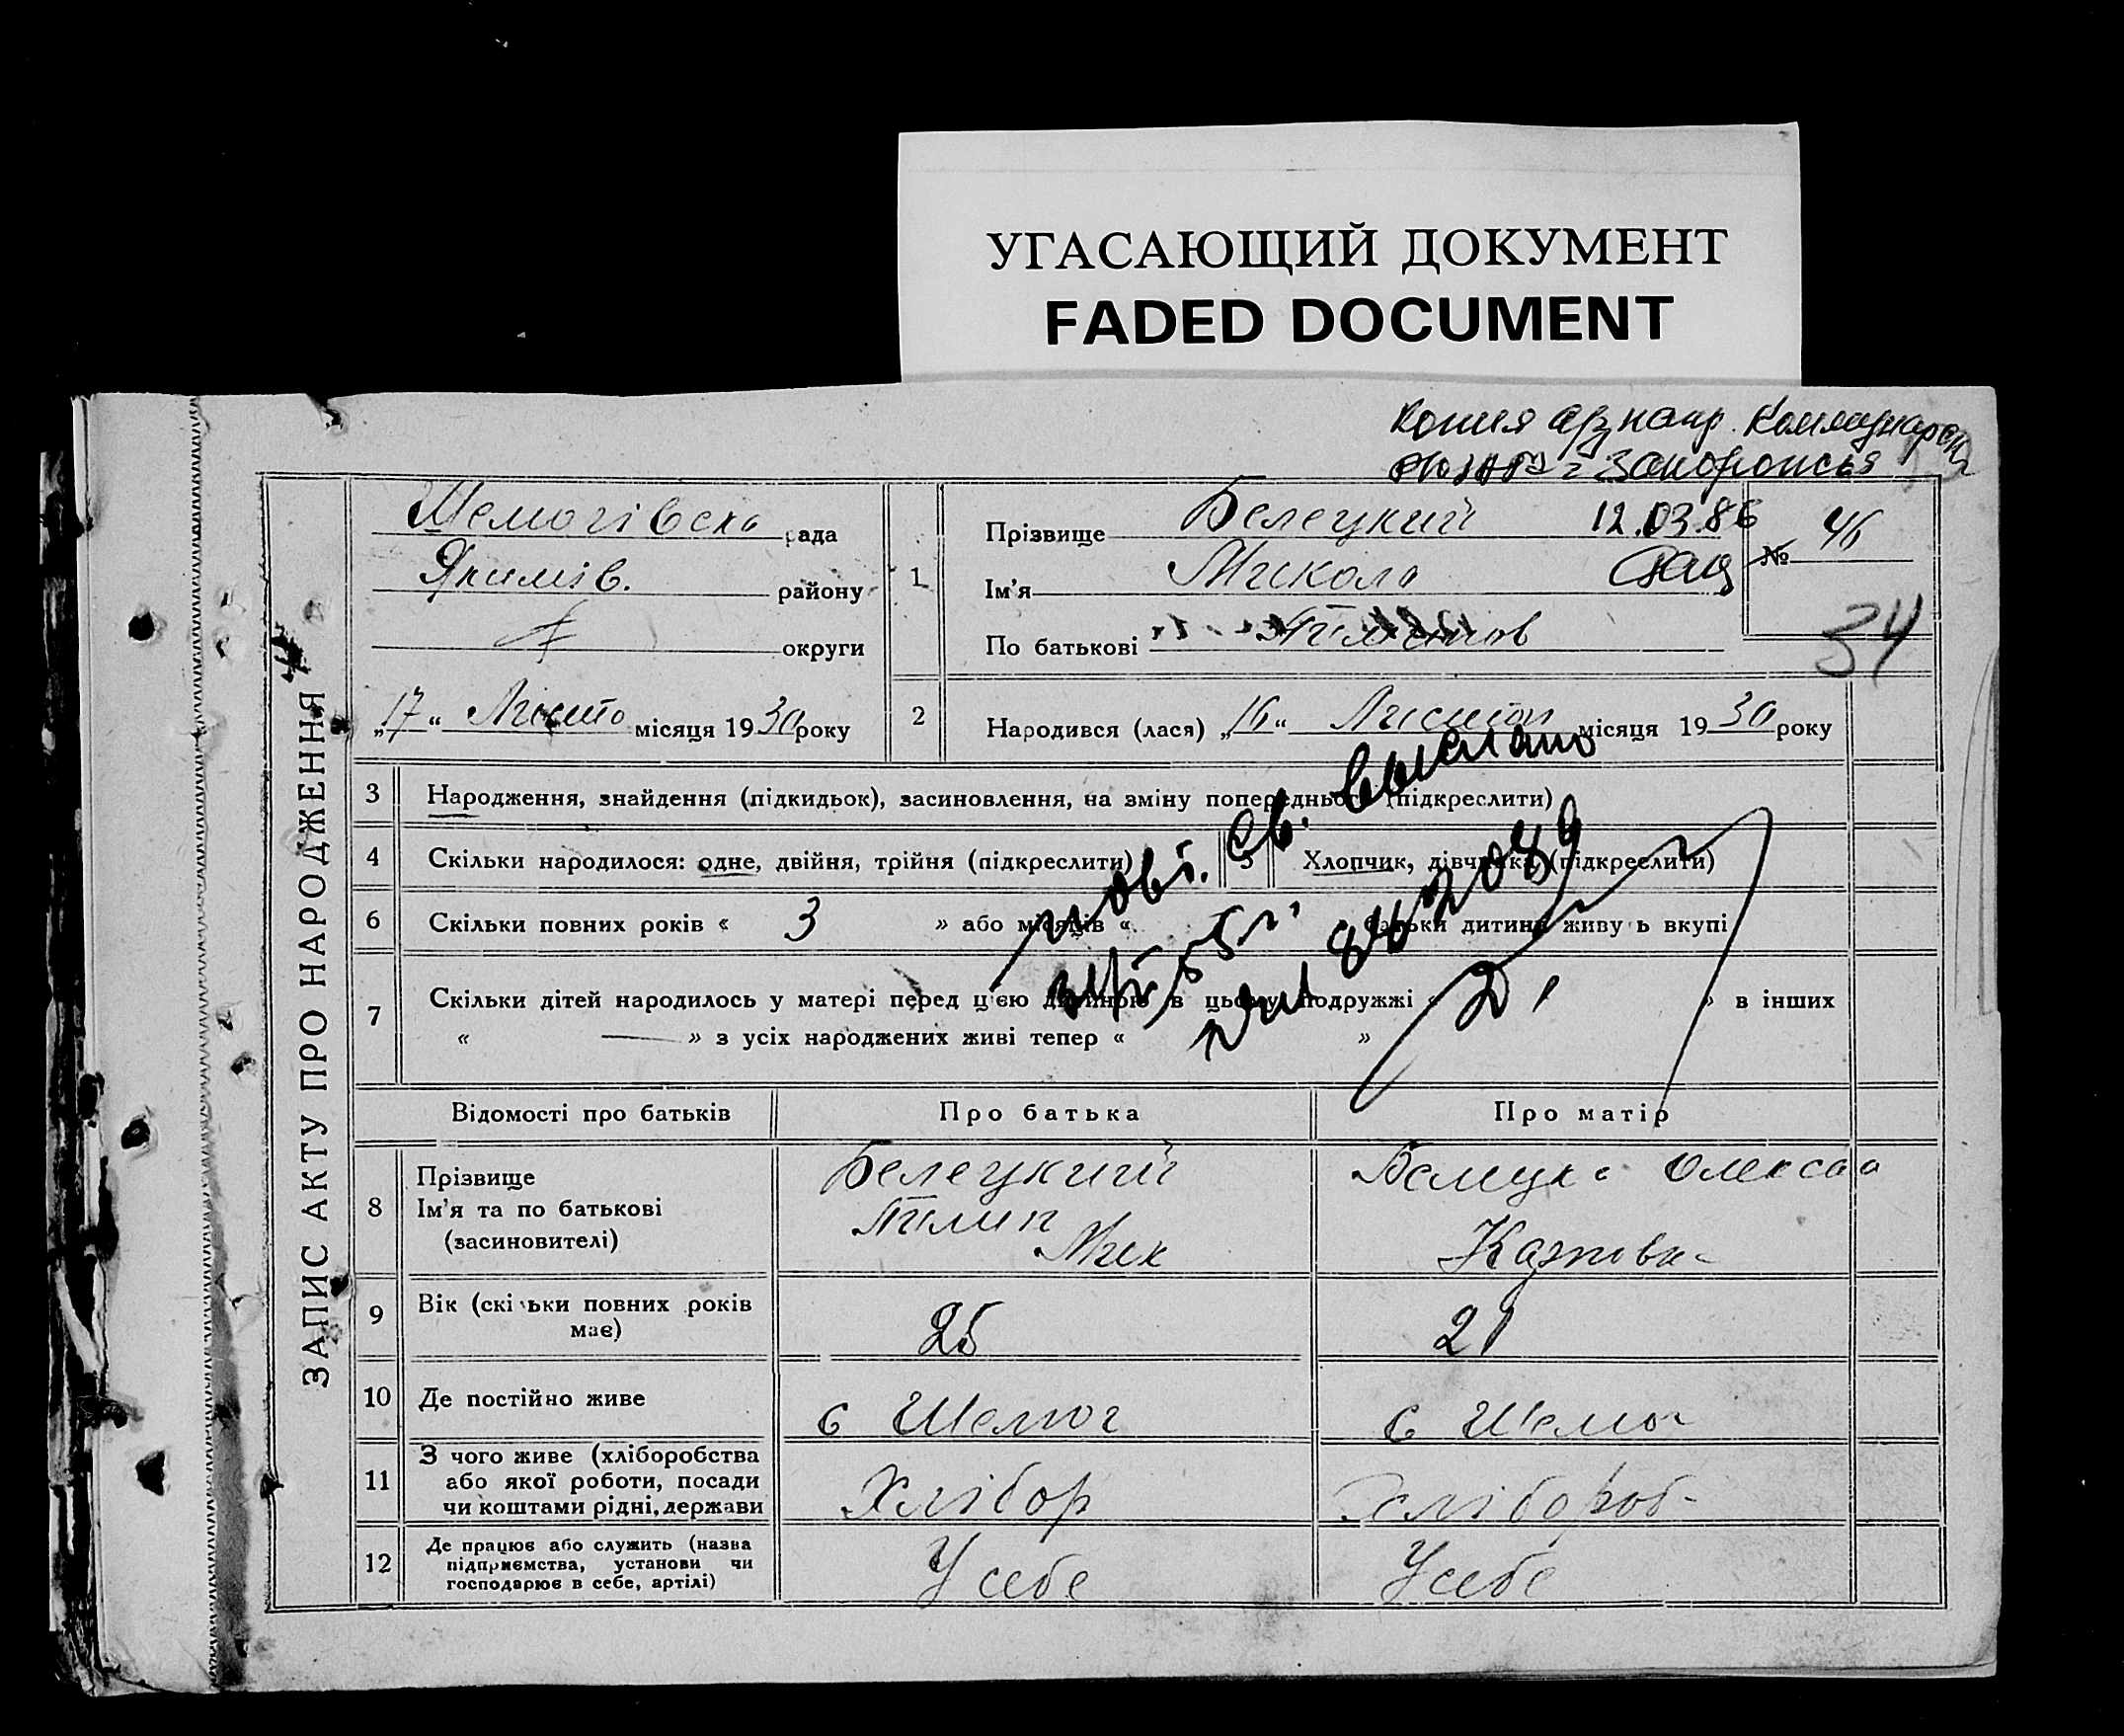 УГАСАЮЩИЙ ДОКУМЕНТ
FADED DOCUMENT
Копия
г Запорожья
12.03.86
ЗАПИС АКТУ ПРО НАРОДЖЕННЯ
Шемогівска рада
Якимів. району
округи
„17“ Листо місяця 1930 року
1
Прізвище Белецкий
Ім'я Микола
По батькові Пилипов
№ 46
34
2 Народився (лася) „16“ Листоп місяця 1930 року
3 Народження, знайдення (підкидьок), засиновлення, на зміну попереднього (підкреслити)
4 Скільки народилося: одне, двійня, трійня (підкреслити)
5 Хлопчик, дівчинка (підкреслити)
6 Скільки повних років « 3 » або місяців « батьки дитини живуть вкупі
7 Скільки дітей народилось у матері перед цією дитиною в цьому подружжі « » в інших
« — » з усіх народжених живі тепер « »
Св. выслано
Відомості про батьків Про батька Про матір
8 Прізвище
Ім'я та по батькові
(засиновителі)
Белецкий
Пилип
Мик
Олекса
9 Вік (скільки повних років має) 25 21
10 Де постійно живе с Шемог с Шемог
11 З чого живе (хліборобства
або якої роботи, посади
чи коштами рідні, держави
Хлібор Хлібороб-
12 Де працює або служить (назва
підприємства, установи чи
господарює в себе, артілі)
У себе У себе